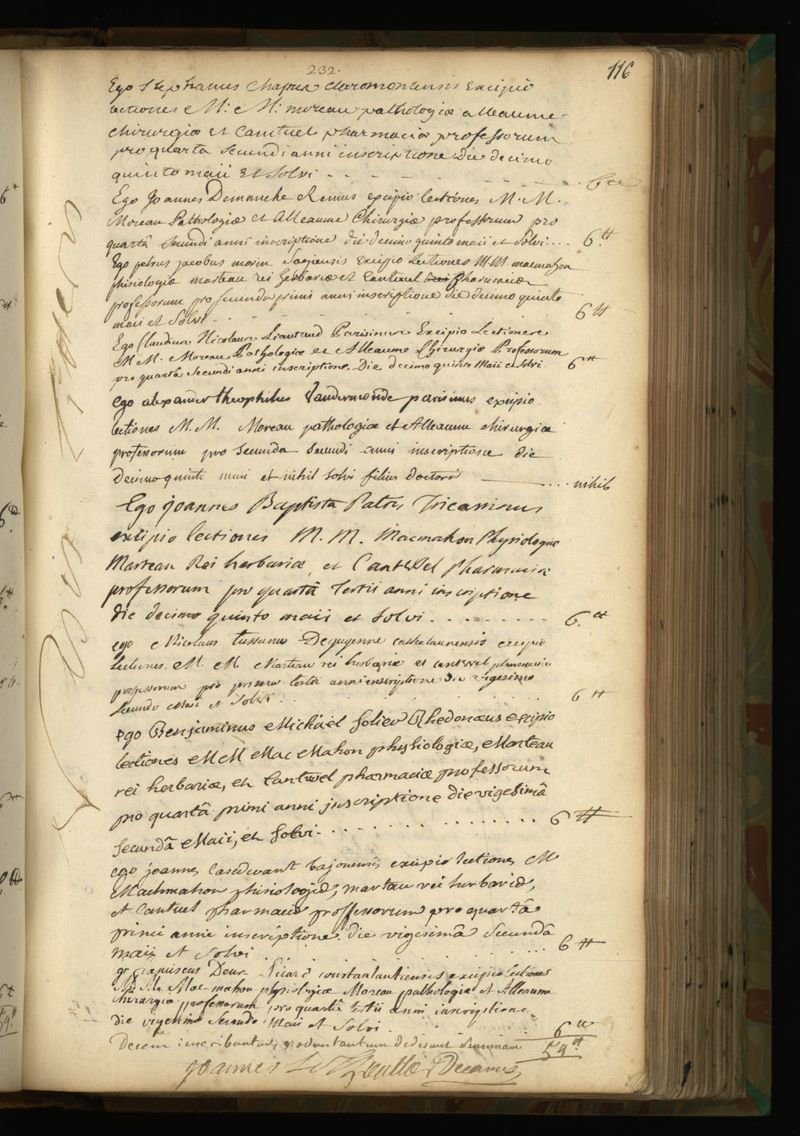 232.
116
Ego Stephanus Chapus claromontensis Excipio
lectiones M. M. moreau pathologiæ alleaume
chirurgiæ et Cantuel pharmaciæ professorum
pro quarta secundi anni inscriptione die decimo
quinto maii et solvi
Ego Joannes Demanche Remus excipio lectiones M. M.
Moreau Pathologiæ et Alleaume Chirurgiæ professorum pro
quartâ secundi anni inscriptione die decimo quinto maii et solvi ... 6tt
Ego petrus jacobus morin Sagiensis Excipio Lectiones MM macmahon
phisiologiæ marteau rei herbariæ et Cantuel pharmaciæ
professorum pro secunda primi anni inscriptione die decimo quinto
maii et solvi 6tt
Ego Claudius Nicolaus Lieutaud Parisinus Excipio Lectiones
M.M. Moreau Pathologiæ et Alleaume Chirurgiæ Professorum
pro quartâ secundi anni inscriptione Die decimo quinto Maii et solvi 6tt
ego alexander theophilus Vandermonde parisinus excipio
lectiones M. M. Moreau pathologiæ et Alleaume chirurgiæ
professorum pro secunda secundi anni inscriptione die
decimo quinto maii et nihil solvi filius doctoris ... nihil
Ego joannes Baptista Patris Tricassinus
excipio lectiones M. M. Macmahon Physiologiæ
Marteau Rei herbariæ, et Cantwel Pharmaciæ
professorum pro quartâ tertii anni inscriptione
die decimo quinto maii et solvi ......... 6.tt
ego Nicolaus tussanus excipio
Lectiones M. M Marteau rei herbariæ et cantwel pharmaciæ
professorum pro prima tertii anni inscriptione die vigesimo
secundo Maii et solvi 6 tt
Ego Benjaminus Michäel solier Rhedonæus excipio
lectiones MM Mac Mahon physiologiæ, Marteau
rei herbariæ, et Cantwel pharmaciæ professorum
pro quartâ primi anni inscriptione die vigesimâ
secundâ Maii, et solvi ......... 6 tt
ego joannes Casedevant bajonensis excipio lectiones M
Machmahon phisiologiæ, martau rei herbariæ,
et Cantuel pharmaciæ proffessorum pro quartâ
primi annii inscriptione die vigesimâ secundâ
maii et solvi 6 tt
ego franciscus constantiensis excipio lectiones
M. M. Mac-mahon physiologiæ Moreau pathologiæ et Alleaume
chirurgiæ professorum pro quartâ tertii anni inscriptione
die vigesimo secundo Maii et solvi 6tt
Decem inscribantur, dederunt summam 54tt
joannes Decanus